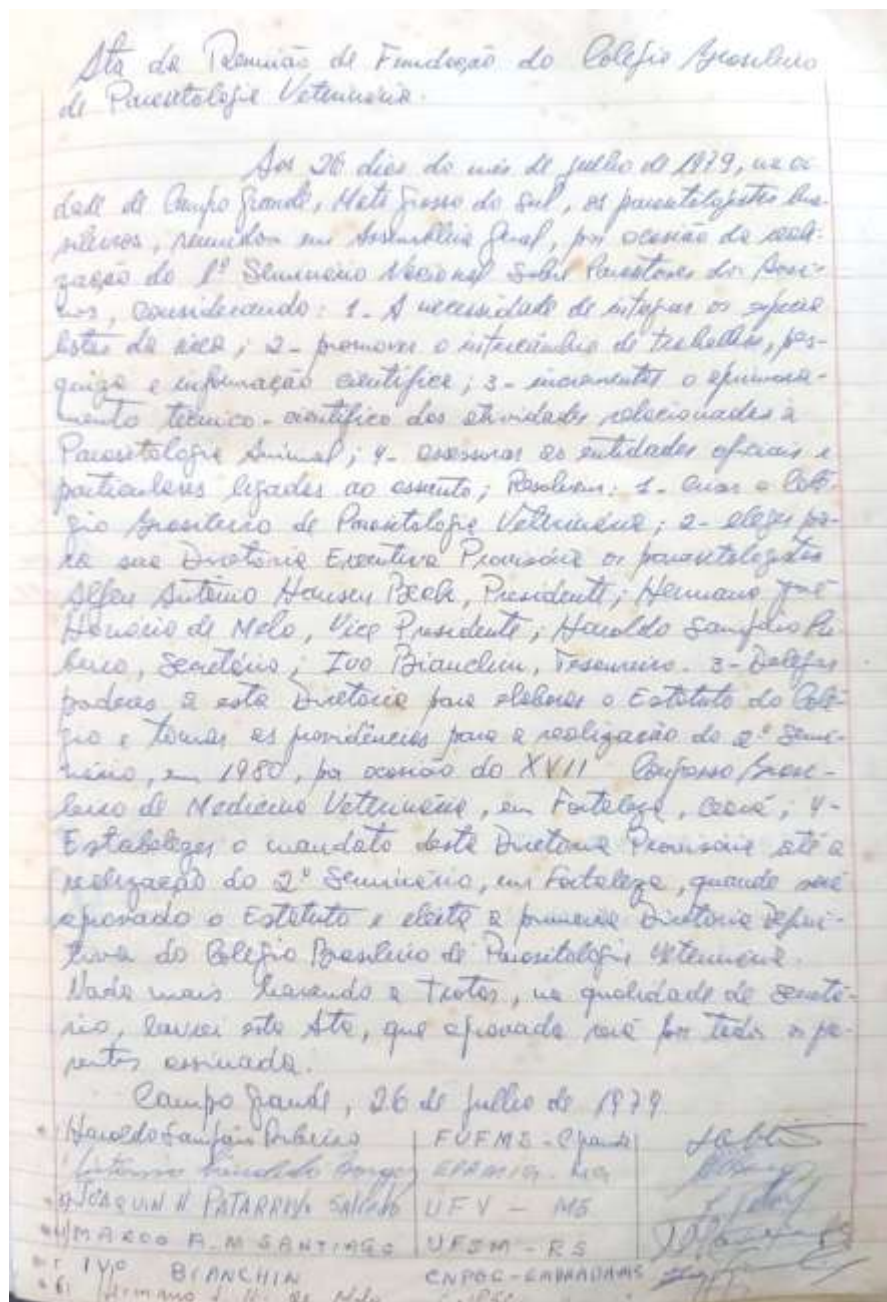 Ata da Reunião de Fundação do Colégio Brasileiro
de Parasitologia Veterinária.
Aos 26 dias do mês de julho de 1979, na ci
dade de Campo Grande, Mato Grosso do Sul, os parasitologistas bra-
sileiros, reunidos em Assembléia Geral, por ocasião da reali-
zação do 1º Seminário Nacional sobre Parasitoses dos Bovi-
nos, considerando: 1- A necessidade de integrar os especia
listas da área; 2- promover o intercâmbio de trabalhos, pes-
quiza e informação científica; 3- incrementar o aprimora-
mento técnico-científico das atividades relacionadas à
Parasitologia Animal; 4- assessorar as entidades oficiais e
particulares ligadas ao assunto; Resolvem: 1- Criar o Colé-
gio Brasileiro de Parasitologia Veterinária; 2- eleger pa-
ra sua Diretoria Executiva Provisória os parasitologistas
Alfeu Antônio Hausen Beck, Presidente; Hermano José
Honório de Melo, Vice Presidente; Haroldo Sampaio Ri
beiro, Secretário; Ivo Bianchin, Tesoureiro. 3- Delegar
poderes a esta Diretoria para elaborar o Estatuto do Colé-
gio e tomar as providências para a realização do 2º Semi-
nário, em 1980, por ocasião do XVII Congresso Brasi-
leiro de Medicina Veterinária, em Fortaleza, Ceará; 4-
Estabelecer o mandato desta Diretoria Provisória até a
realização do 2º Seminário, em Fortaleza, quando será
aprovado o Estatuto e eleita a primeira Diretoria Defini-
tiva do Colégio Brasileiro de Parasitologia Veterinária.
Nada mais havendo a tratar, na qualidade de secretá-
rio, lavrei esta Ata, que aprovada será por todos os pre-
sentes assinada.
Campo Grande, 26 de julho de 1979.
Haroldo Sampaio Ribeiro FUFMS - C.
Antonio Borges EPAMIG - MG
JOAQUIN H PATARROYO SALCEDO UFV - MG
MARCO A. M SANTIAGO UFSM - RS
IVO BIANCHIN
Hermano J. H. de Melo